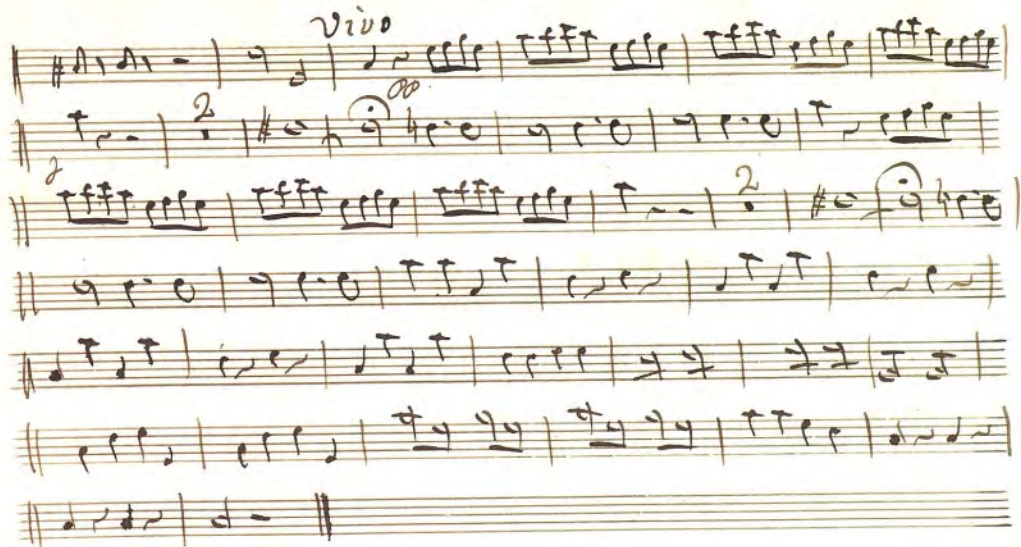 Vivo
2
2